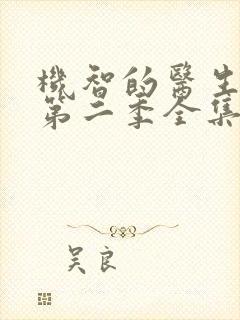 機智的醫生
第二季全集
吴良